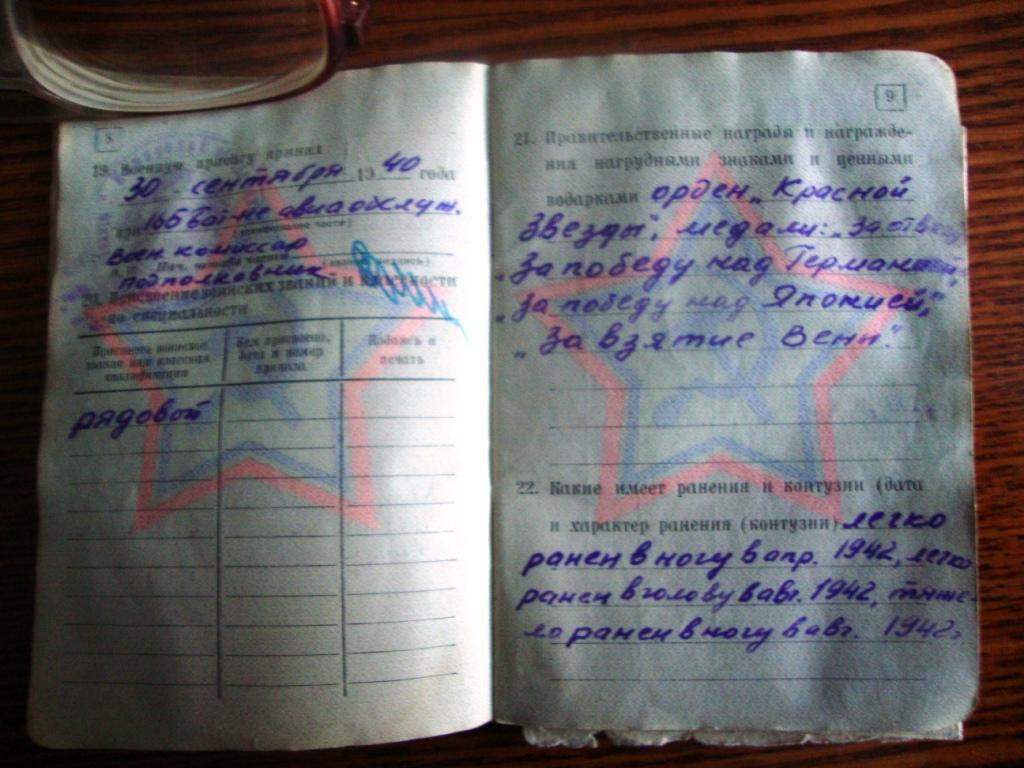 8
19. Военную присягу принял
30 сентября 1940 года
при
воен. комиссар
подполковник
20. Присвоение воинских званий и
по специальности
Присвоено воинское
звание или классная
квалификация
Кем присвоено,
дата и номер
приказа
Подпись и
печать
рядовой
9
21. Правительственные награды и награжде-
ния нагрудными знаками и ценными
подарками орден „Красной
Звезды", медали: „За отвагу"
„За победу над Германией",
„За победу над Японией",
„За взятие Вены".
22. Какие имеет ранения и контузии (дата
и характер ранения (контузии) легко
ранен в ногу в апр. 1942, легко
ранен в голову в авг. 1942, тяже-
ло ранен в ногу в авг. 1942г